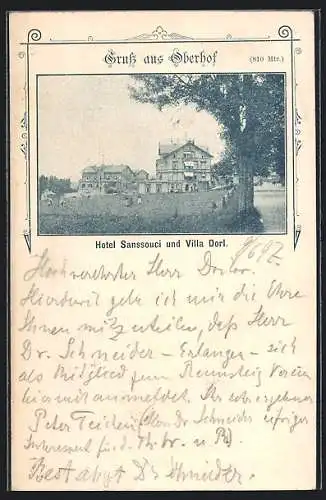 Gruß aus Oberhof
(810 Mtr.)
Hotel Sanssouci und Villa Dorl.
9/6 97.
Hochverehrter Herr Doctor.
Hierdurch gebe ich mir die Ehre
Ihnen mitzuteilen, daß Herr
Dr. Schneider – Erlangen – sich
als Mitglied zum Rennsteig Verein
anmeldet. Ihr sehr ergebener
Peter Dr. Schneider eifriger
Interessent für d. Th. W. u. R.
Best abgt Dr Schneider.